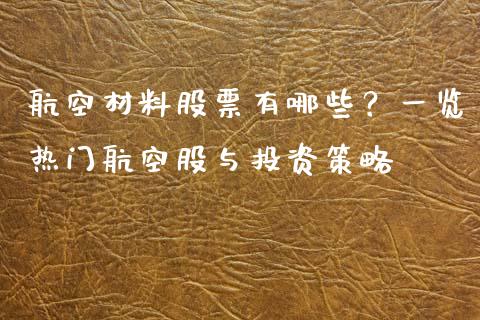 航空材料股票有哪些？一览
热门航空股与投资策略